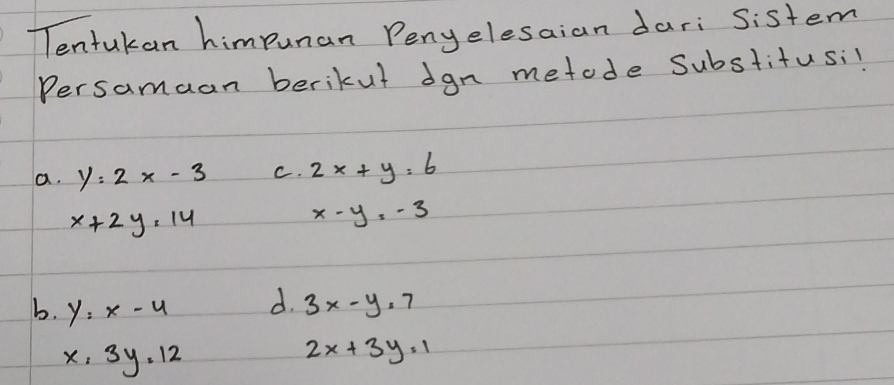 Tentukan himpunan Penyelesaian dari Sistem
Persamaan berikut dgn metode Substitusi!
a. y = 2x - 3
x + 2y = 14
b. y = x - 4
x = 3y = 12
c. 2x + y = 6
x - y = -3
d. 3x - y = 7
2x + 3y = 1